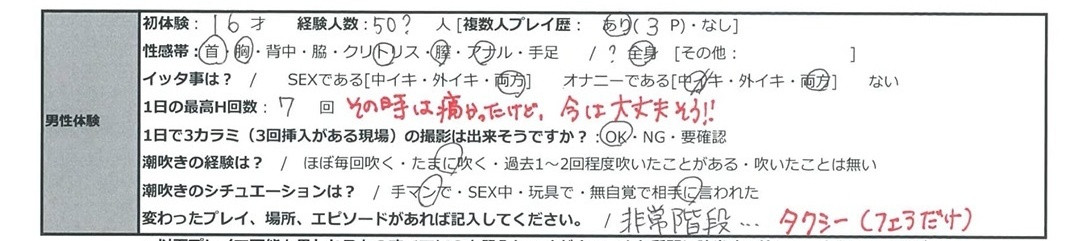 初体験： 16 才 経験人数：50？ 人 [複数人プレイ歴： あり( 3 P)・なし]
性感帯：首・胸・背中・脇・クリトリス・膣・アナル・手足 / ? 全身 [その他： ]
イッタ事は？ / SEXである[中イキ・外イキ・両方] オナニーである[中イキ・外イキ・両方] ない
1日の最高H回数： 7 回 その時は痛かったけど、今は大丈夫そう!!
男性体験
1日で3カラミ（3回挿入がある現場）の撮影は出来そうですか？：OK・NG・要確認
潮吹きの経験は？ / ほぼ毎回吹く・たまに吹く・過去1～2回程度吹いたことがある・吹いたことは無い
潮吹きのシチュエーションは？ / 手マンで・SEX中・玩具で・無自覚で相手に言われた
変わったプレイ、場所、エピソードがあれば記入してください。 / 非常階段… タクシー（フェラだけ）